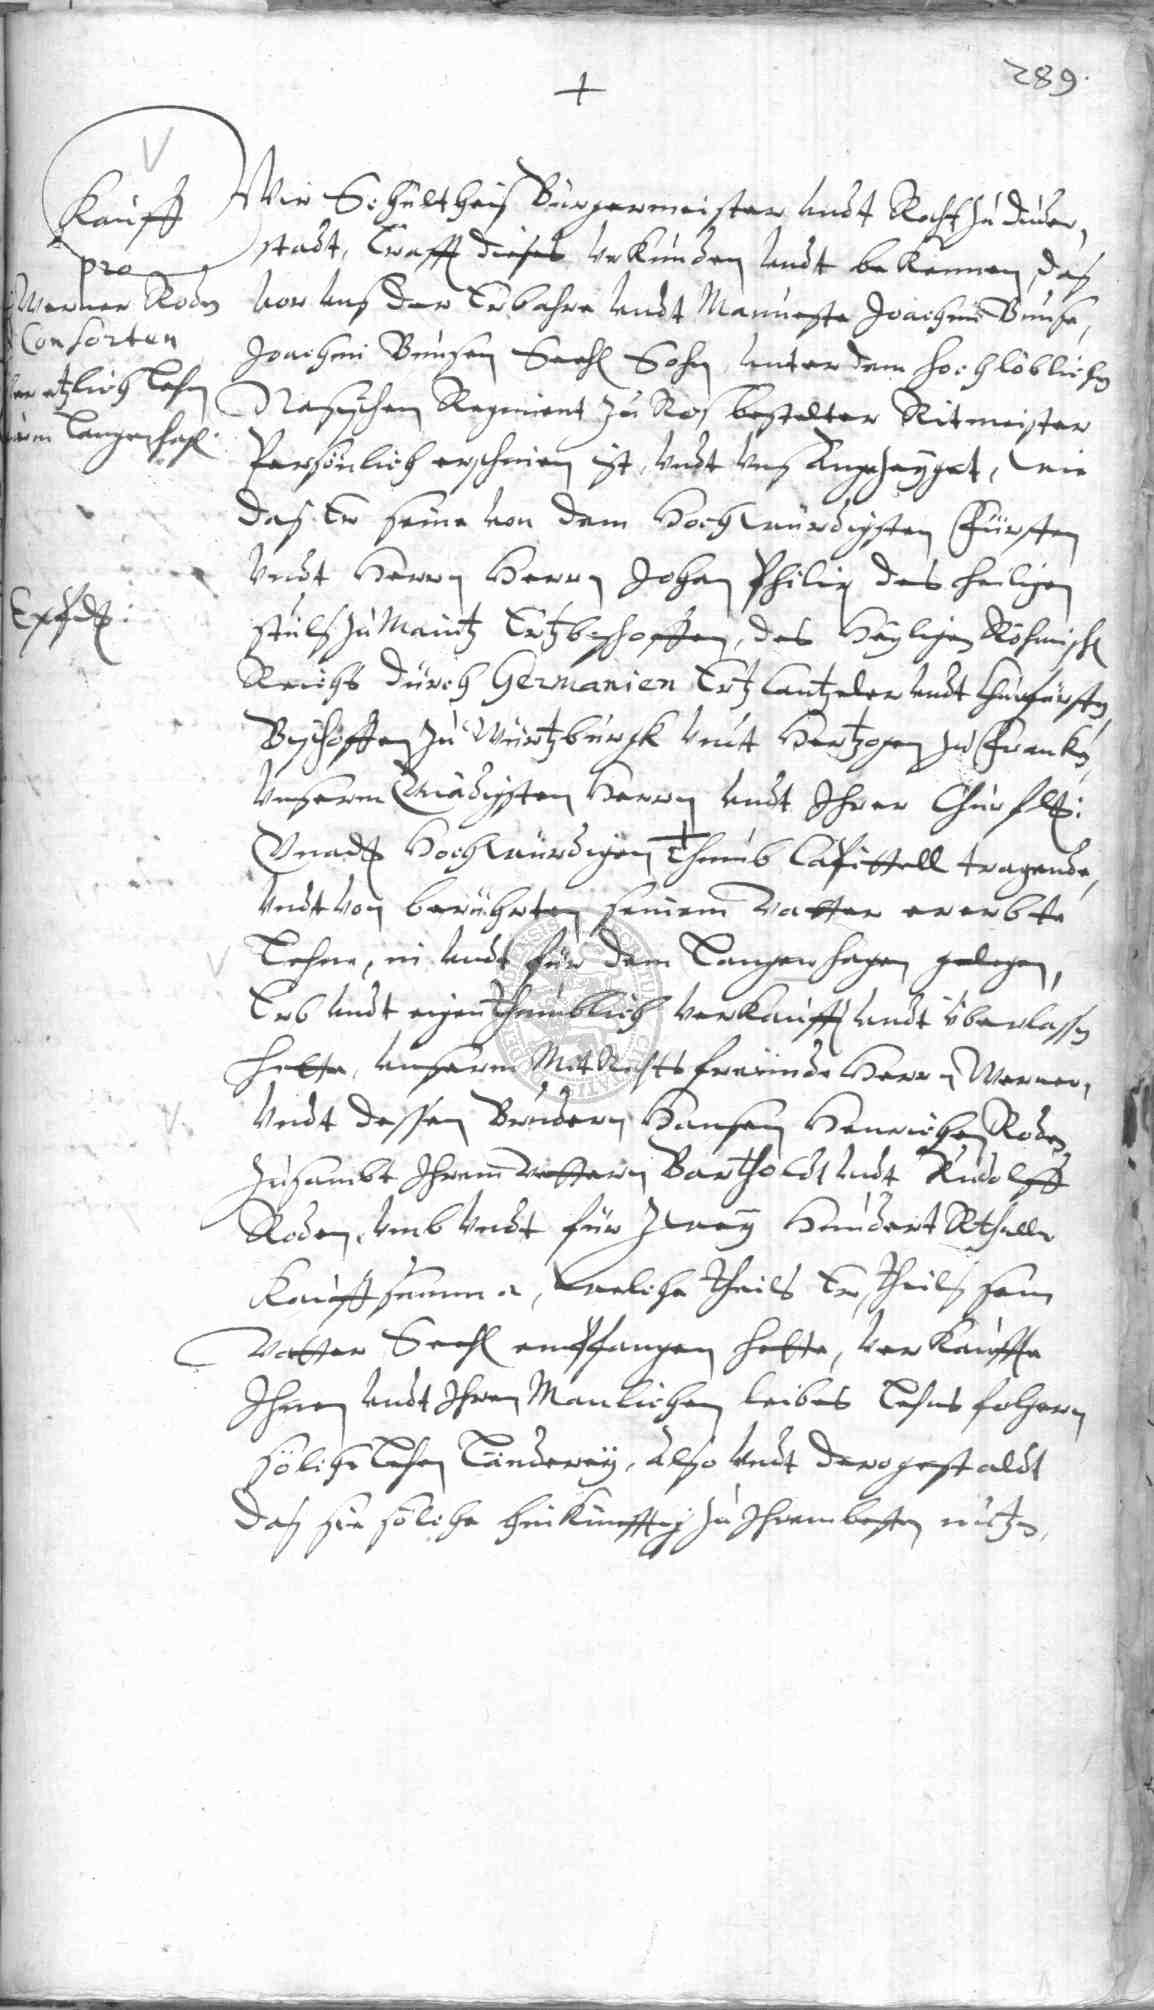 289.
Kauff
pro
Werner Roden
Consorten
etzlich Lehn
Langenhag.
Expedt:
Wir Schultheis Bürgermeister undt Rath zu Duder,
stadt, Crafft dieses Urkunden undt bekennen, das
vor uns der Erbahre undt Manveste Joachim Bunse,
Joachim Bunsen Seehl Sohn, unter dem hochlöblichen
Regiment zu Ros bestelter Ritmeister
Persönlich erschienen ist, undt uns angezeyget, wie
das Er seine von dem Hochwürdigsten Fürsten
undt Herrn Herrn Johan Philip des heiligen
stuls zu Maintz Ertzbischoffen, des Heyligen Röhmisch
Reichs durch Germanien Ertzcantzeler undt Churfürsten,
Bischoffen zu Würtzburgk undt Hertzogen zu Francken,
unserm Gnädigsten Herrn undt Ihrer Churfl:
Gnad Hochwürdigen Thumb Capittell tragende,
undt von berührten seinem Vatter ererbte
Lehne, in undt für dem Langenhagen gelegen,
Erb undt eigenthumblich verkaufft undt überlassen
hette, unserm Mit Rahtsfreunde Herrn Werner,
undt dessen Brudern Hansen Henrichen Roden
zusambt Ihrem Vettern Bartholdt undt Rudolff
Roden, umb undt für Zwey Hundert Rthaller
Kauffsumma, welche theils Er, theils sein
Vatter Seehl empfangen hette, verkauffte
Ihnen undt Ihren Manlichen leibes Lehns folgern
solche Lehen Länderey, also undt dergestaldt
das sie solche hinkünfftig zu Ihrem besten nutzen,